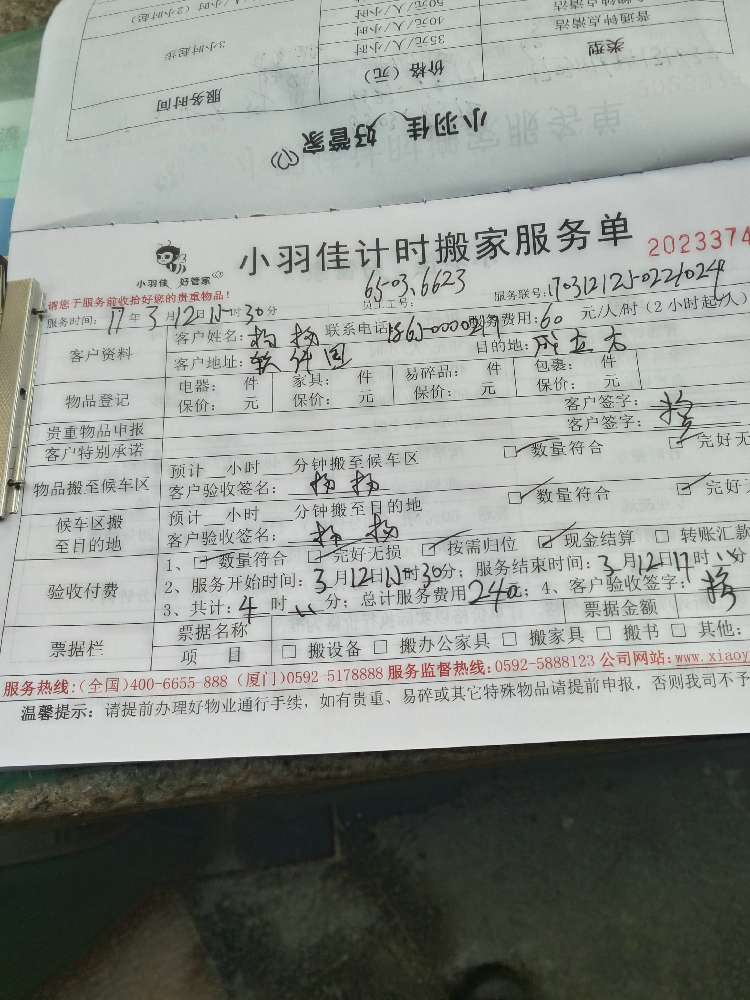 普通钟点清洁 35元/人/小时
40元/人/小时
50元/人/小时
3小时起步
类型 价格（元） 服务时间
小羽佳 好管家
小羽佳 好管家
小羽佳计时搬家服务单 2023374
请您于服务前收拾好您的贵重物品！ 6503.6623
员工工号： 服务联号：
服务时间：17年3月12日 时30分
客户资料 客户姓名：杨杨 联系电话 服务费用：60 元/人/时（2小时起/人）
客户地址：软件园 目的地：
物品登记 电器： 件 家具： 件 易碎品： 件 包裹： 件
保价： 元 保价： 元 保价： 元 保价： 元
贵重物品申报 客户签字：
客户特别承诺 客户签字：
物品搬至候车区 预计 小时 分钟搬至候车区 数量符合 完好无
客户验收签名：杨杨
候车区搬至目的地 预计 小时 分钟搬至目的地 数量符合 完好无
客户验收签名：杨杨
验收付费 1、数量符合 完好无损 按需归位 现金结算 转账汇款
2、服务开始时间：3月12日 时30分；服务结束时间：3月12日17时 分
3、共计：4时 分；总计服务费用240元；4、客户验收签字：
票据栏 票据名称 票据金额
项 目 搬设备 搬办公家具 搬家具 搬书 其他：
服务热线:(全国)400-6655-888 (厦门)0592-5178888 服务监督热线:0592-5888123 公司网站:www.xiaoy
温馨提示：请提前办理好物业通行手续，如有贵重、易碎或其它特殊物品请提前申报，否则我司不予